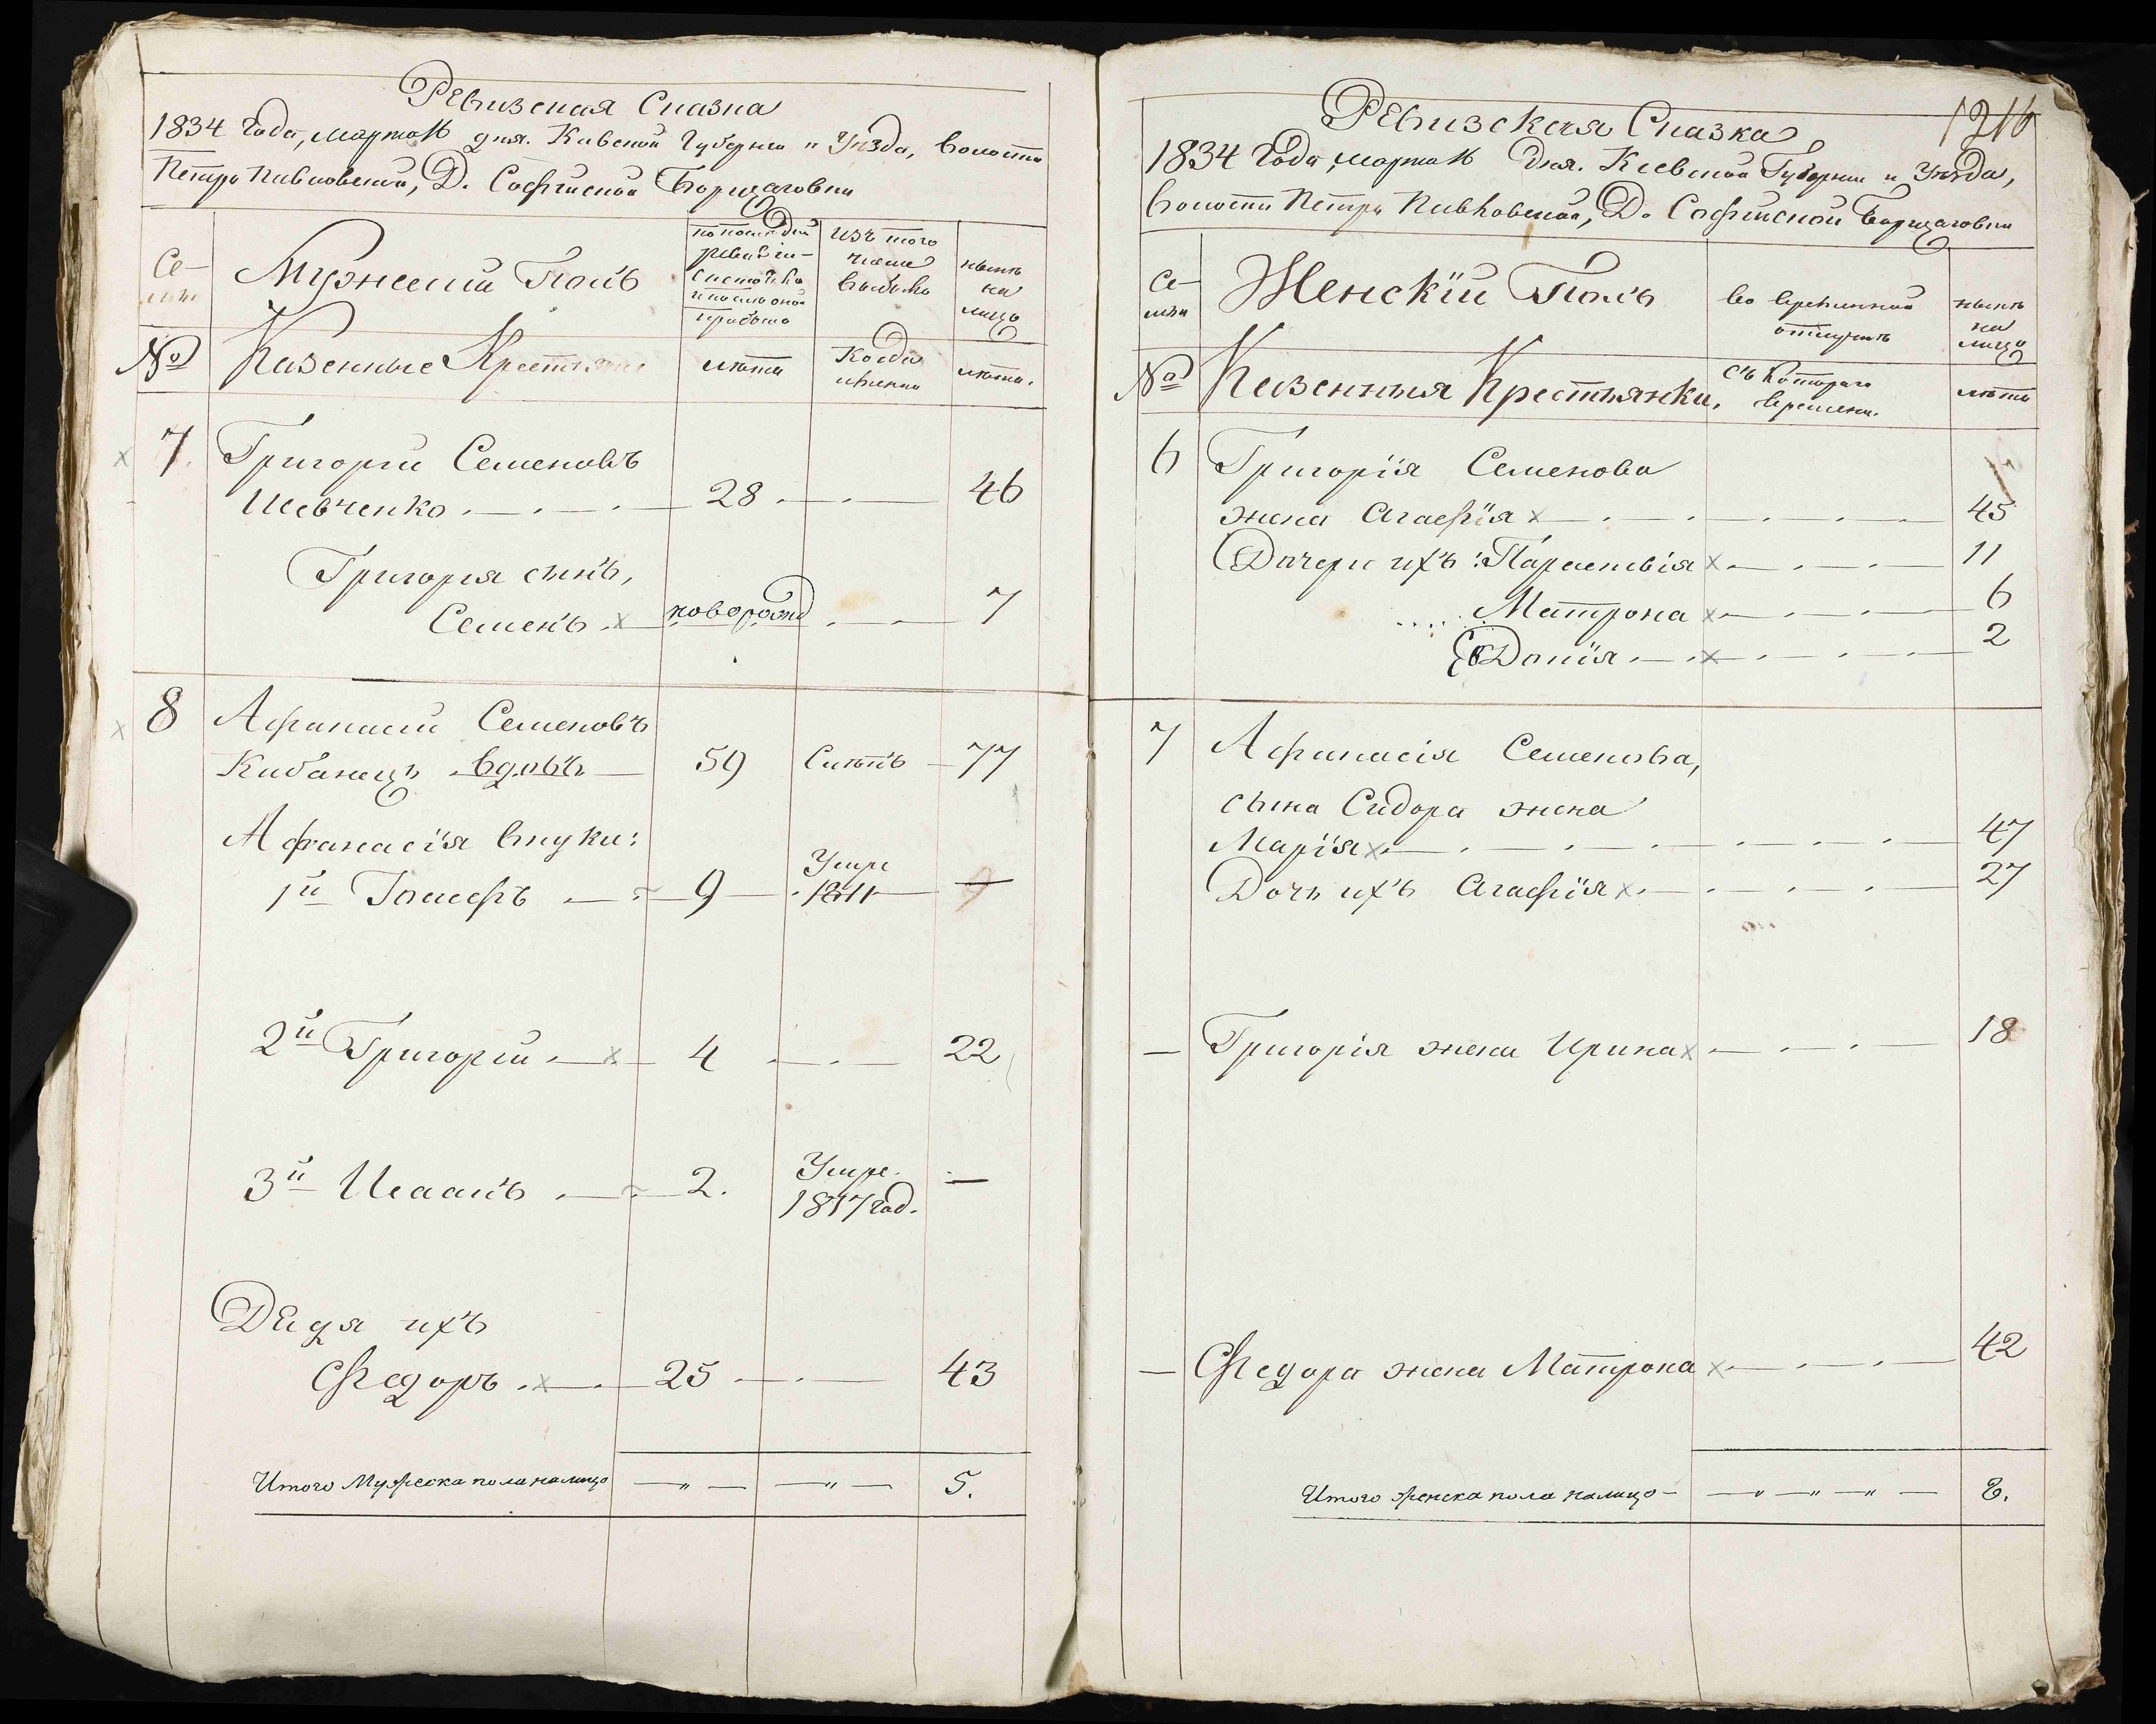 Ревизская Сказка
1834 Года, марта 16 дня. Киевской Губернии и Уезда, Волости
Петро Павловской, Д. Софиевской Борщаговки
Се-
мьи
Мужеский Полъ
по последней
ревизии
состояло
и после оной
прибыло
Изъ того
числа
выбыло
ныне
на
лицо
№
Казенные Крестьяне
лета
Когда
именно
лета.
7.
Григорий Семеновъ
Шевченко 28 46
Григория сынъ,
Семенъ х новорожд 7
8 Афанасий Семеновъ
Кибанецъ вдовъ 59 Слепъ 77
Афанасія внуки:
1й Іосифъ 9 Умре 1811
2й Григорий х 4 22
3й Исаакъ 2. Умре. 1817 год.
Дядя ихъ
Федоръ х 25 43
Итого Мужеска пола налицо 5.
1216
Ревизская Сказка
1834 Года, марта 16 Дня. Киевской Губернии и Уезда,
Волости Петро Павловской, Д. Софиевской Борщаговки
Се-
мьи
Женскій Полъ
во временной
отлучке
ныне
на
лицо
№
Казенныя Крестьянки.
съ котораго
времени.
лета
6 Григорія Семенова
жена Агафія х 45
Дочери ихъ: Параскевія х 11
Матрона х 6
Евдокія х 2
7 Афанасія Семенова,
сына Сидора жена
Марія х 47
Дочь ихъ Агафія х 27
— Григорія жена Ирина х 18
— Федора жена Матрона х 42
Итого женска пола налицо 8.